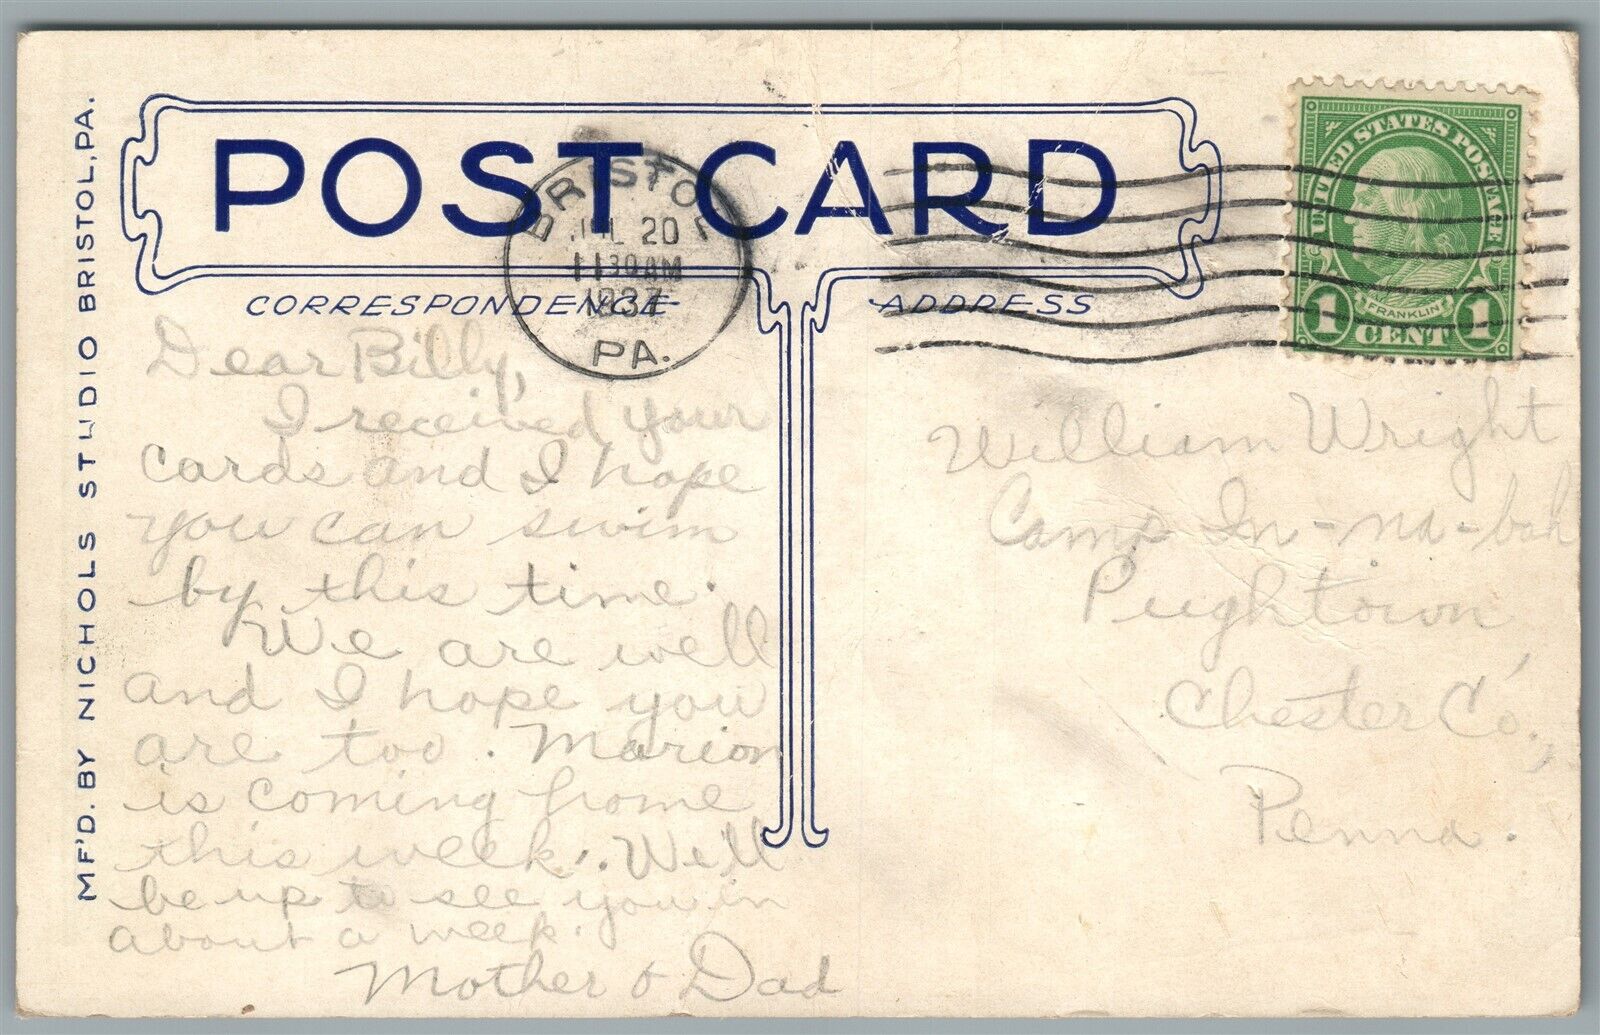 POST CARD
CORRESPONDENCE
ADDRESS
MF'D. BY NICHOLS STUDIO BRISTOL, PA.
BRISTOL
JUL 20
11 30 AM
1937
PA.
UNITED STATES POSTAGE
FRANKLIN
1 CENT 1
Dear Billy,
I received your
cards and I hope
you can swim
by this time.
We are well
and I hope you
are too. Marion
is coming home
this week. We'll
be up to see you in
about a week.
Mother & Dad
William Wright
Camp In-na-bah
Pughtown
Chester Co.,
Penna.